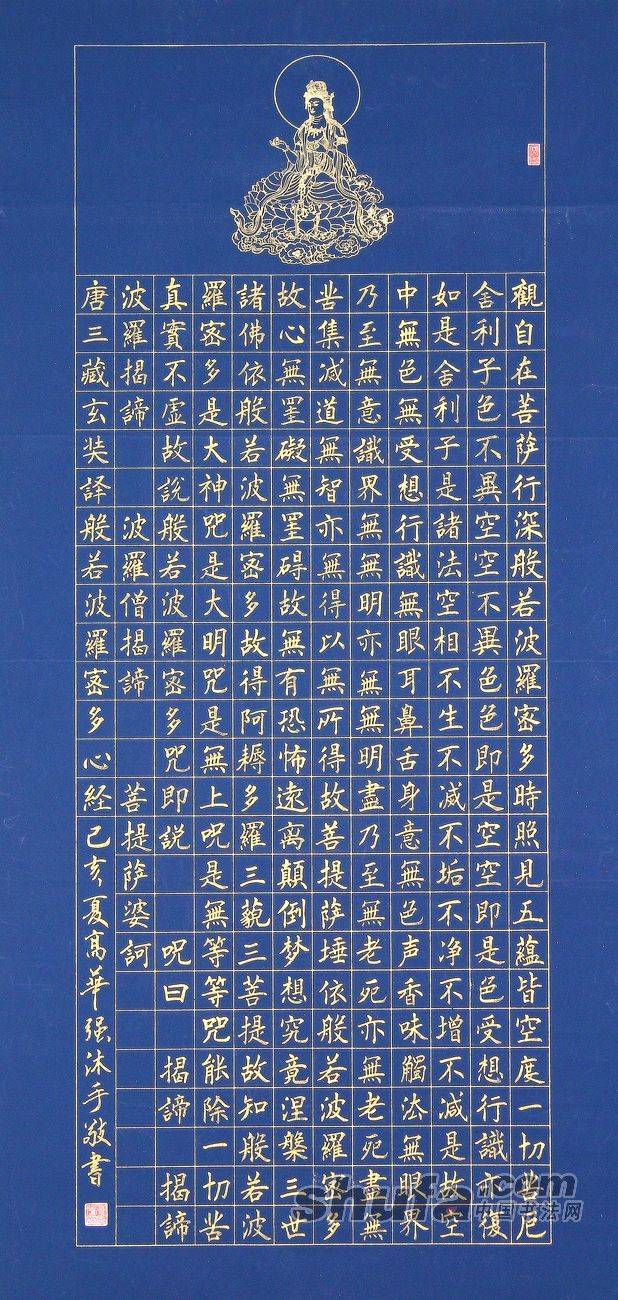 觀自在菩萨行深般若波羅密多時照見五蘊皆空度一切苦厄
舍利子色不異空空不異色色即是空空即是色受想行識亦復
如是舍利子是諸法空相不生不滅不垢不净不增不減是故空
中無色無受想行識無眼耳鼻舌身意無色声香味觸法無眼界
乃至無意識界無無明亦無無明盡乃至無老死亦無老死盡無
苦集滅道無智亦無得以無所得故菩提萨埵依般若波羅密多
故心無罣礙無罣碍故無有恐怖遠离顛倒梦想究竟涅槃三世
諸佛依般若波羅密多故得阿耨多羅三藐三菩提故知般若波
羅密多是大神咒是大明咒是無上咒是無等等咒能除一切苦
真實不虛故說般若波羅密多咒即說 呪曰 揭諦 揭諦
波羅揭諦 波羅僧揭諦 菩提萨婆訶
唐三藏玄奘譯般若波羅密多心経 己亥夏高華强沐手敬書
shufa.com
中国书法网